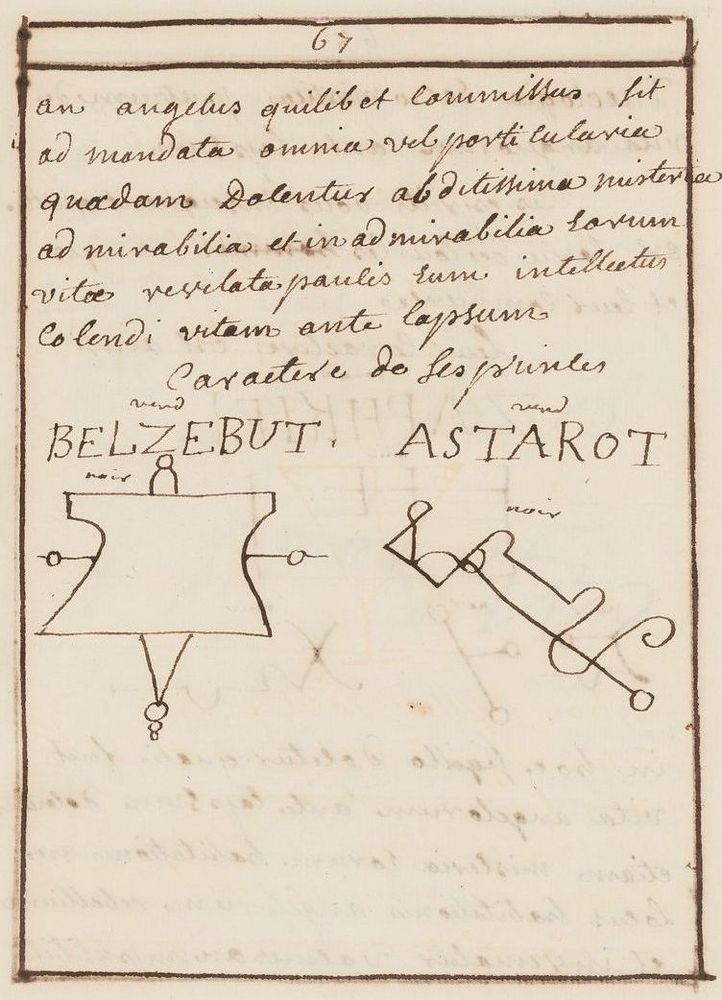 67
an angelus quilibet commissus sit
ad mandata omnia vel porticularia
quædam Dolentur abditissima misteria
ad mirabilia et in admirabilia eorum
vitæ revelata paulis cum intellectus
Colendi vitam ante lapsum
Caractere de ses princes
verd verd
BELZEBUT. ASTAROT
noir noir